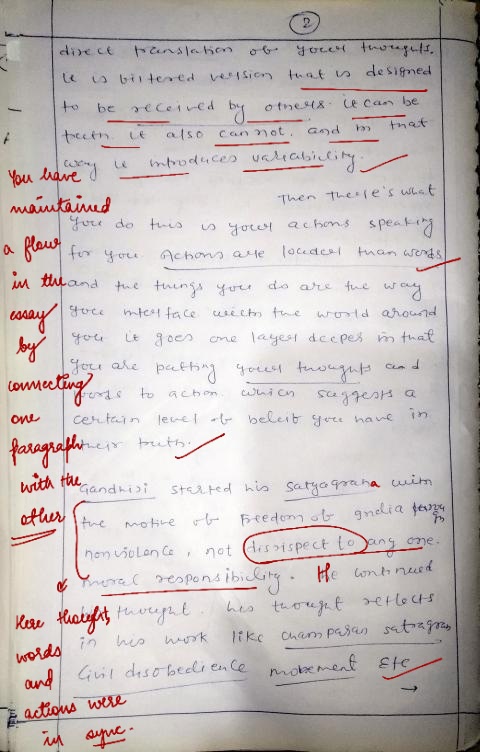 2
direct translation of your thoughts.
It is biltered version that is designed
to be received by others. it can be
truth. it also can not. and in that
way it introduces variability.
Then there's what
you do this is your actions speaking
for you. Actions are louder than words
and the things you do are the way
you interface with the world around
you it goes one layer deeper in that
you are putting your thoughts and
words to action. which suggests a
certain level of beleif you have in
their truth.
Gandhiji started his satyagraha with
the motive of freedom of India
nonviolence, not dissispect to any one.
moral responsibility. He continued
thought. his thought reflects
in his work like champaran satragrah
Civil disobedience movement Etc
You have
maintained
a flow
in the
essay
by
connecting
one
paragraph
with the
other
Here thought,
words
and
actions were
in sync.